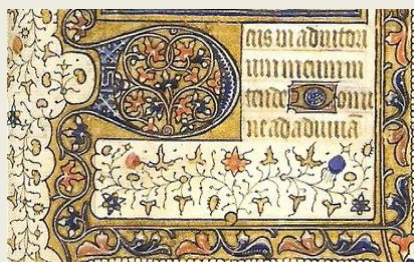 Deus in adiutori
um meum in
tende Domi
ne ad adiuuā